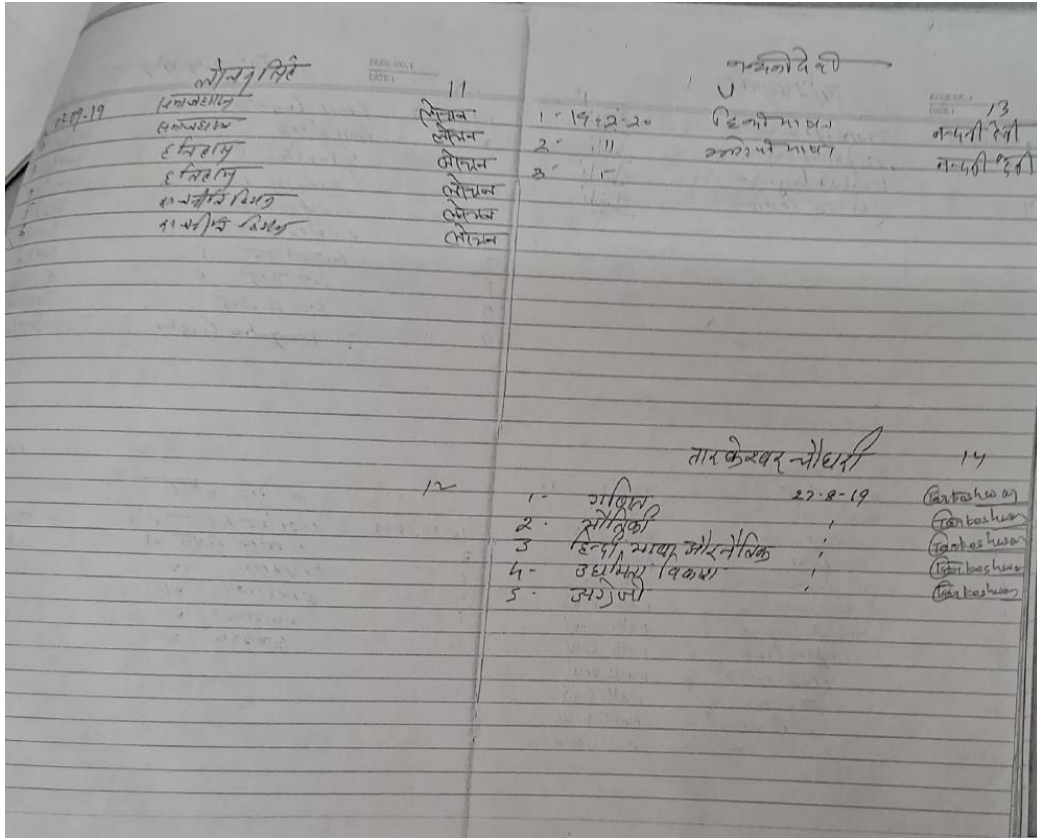 लोचन सिंह
11
PAGE NO.:
DATE:
-09-19 समाजशास्त्र लोचन
समाजशास्त्र लोचन
इतिहास लोचन
इतिहास लोचन
राजनीति विज्ञान लोचन
राजनीति विज्ञान लोचन
12
नन्दनी देवी
13
1- 19-2-20 हिन्दी भाषा नन्दनी देवी
2- " भाषा नन्दनी देवी
3-
तारकेश्वर चौधरी 14
1- गणित 27-8-19 Tarkeshwar
2- भौतिकी Tarkeshwar
3 हिन्दी, भाषा और नैतिक Tarkeshwar
4- उद्यमिता विकास Tarkeshwar
5- अंग्रेजी Tarkeshwar